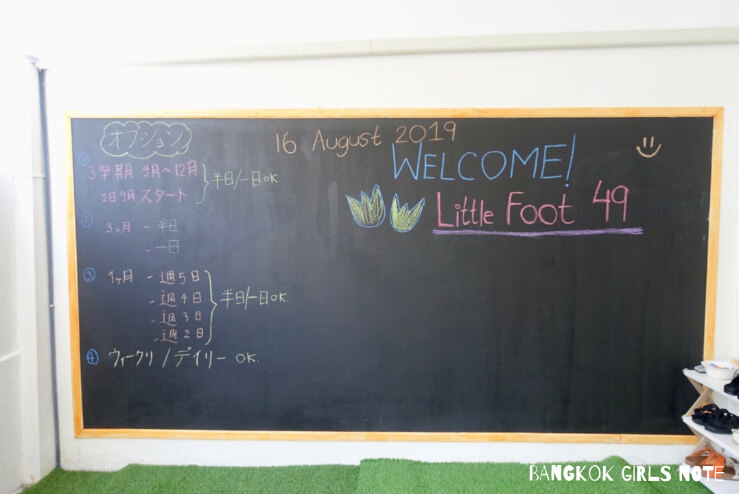 16 August 2019
WELCOME!
Little Foot 49
オプション
① 3学期 9月〜12月
2日9月 スタート
半日/一日OK.
② 3ヶ月 - 半日
- 一日
③ 1ヶ月 - 週5日
- 週4日
- 週3日
- 週2日
半日/一日OK
④ ウィークリ / デイリー OK.
BANGKOK GIRLS NOTE